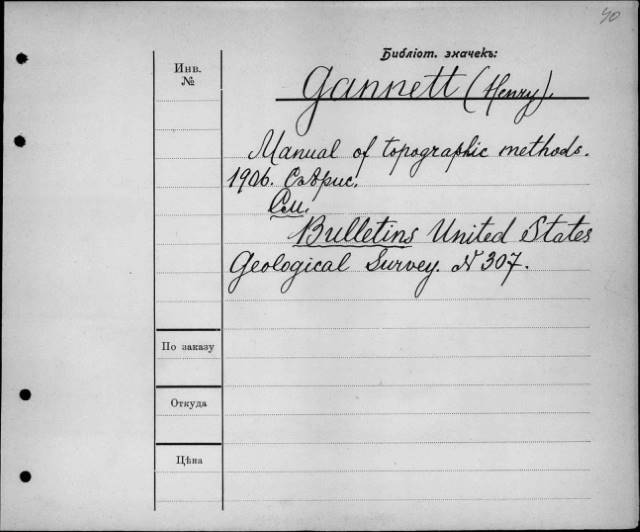 40
Библіот. значекъ:
Инв.
№
Gannett (Henry).
Manual of topographic methods.
1906. Съ рис.
См.
Bulletins United States
Geological Survey. N 307.
По заказу
Откуда
Цѣна